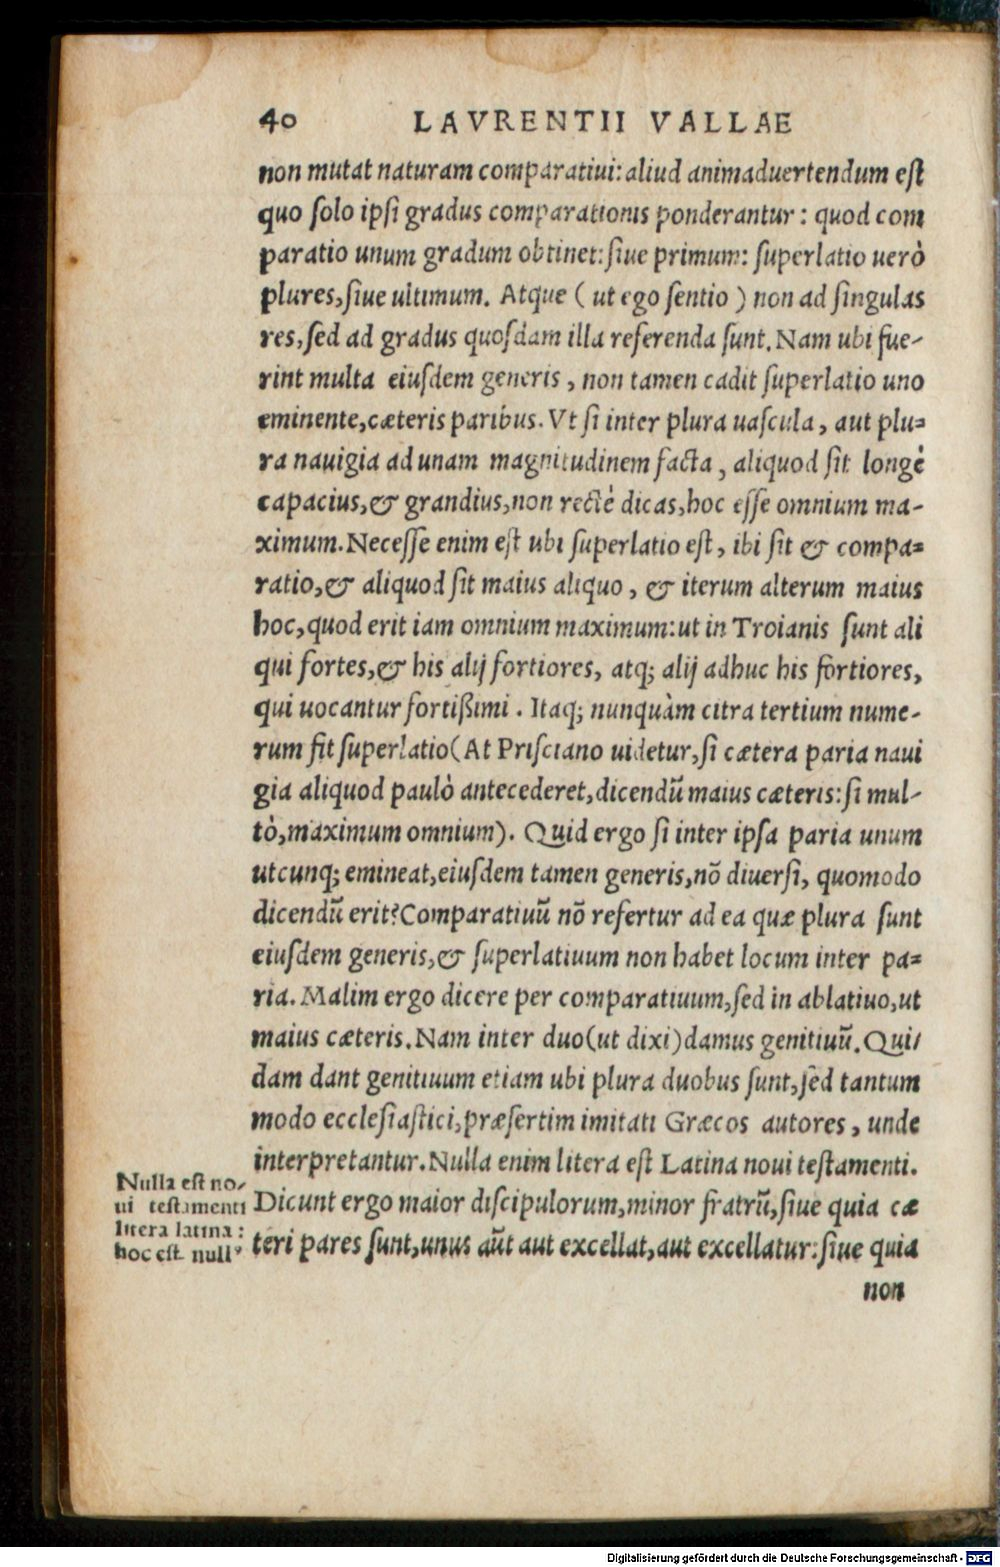 40 LAVRENTII VALLAE
non mutat naturam comparatiui: aliud animaduertendum eſt
quo ſolo ipſi gradus comparationis ponderantur: quod com
paratio unum gradum obtinet: ſiue primum: ſuperlatio uerò
plures, ſiue ultimum. Atque ( ut ego ſentio ) non ad ſingulas
res, ſed ad gradus quoſdam illa referenda ſunt. Nam ubi fue-
rint multa eiuſdem generis, non tamen cadit ſuperlatio uno
eminente, cæteris paribus. Vt ſi inter plura uaſcula, aut plu-
ra nauigia ad unam magnitudinem facta, aliquod ſit longè
capacius, & grandius, non rectè dicas, hoc eſſe omnium ma-
ximum. Neceſſe enim eſt ubi ſuperlatio eſt, ibi ſit & compa-
ratio, & aliquod ſit maius aliquo, & iterum alterum maius
hoc, quod erit iam omnium maximum: ut in Troianis ſunt ali
qui fortes, & his alij fortiores, atq; alij adhuc his fortiores,
qui uocantur fortißimi. Itaq; nunquàm citra tertium nume-
rum fit ſuperlatio (At Priſciano uidetur, ſi cætera paria naui
gia aliquod paulò antecederet, dicendũ maius cæteris: ſi mul-
tò, maximum omnium). Quid ergo ſi inter ipſa paria unum
utcunq; emineat, eiuſdem tamen generis, nõ diuerſi, quomodo
dicendũ erit? Comparatiuũ nõ refertur ad ea quæ plura ſunt
eiuſdem generis, & ſuperlatiuum non habet locum inter pa-
ria. Malim ergo dicere per comparatiuum, ſed in ablatiuo, ut
maius cæteris. Nam inter duo (ut dixi) damus genitiuũ. Qui-
dam dant genitiuum etiam ubi plura duobus ſunt, ſed tantum
modo eccleſiaſtici, præſertim imitati Græcos autores, unde
interpretantur. Nulla enim litera eſt Latina noui teſtamenti.
Dicunt ergo maior diſcipulorum, minor fratrũ, ſiue quia cæ
teri pares ſunt, unus aũt aut excellat, aut excellatur: ſiue quia
non
Nulla eſt no-
ui teſtamenti
litera latina:
hoc eſt nullꝰ
Digitalisierung gefördert durch die Deutsche Forschungsgemeinschaft - DFG